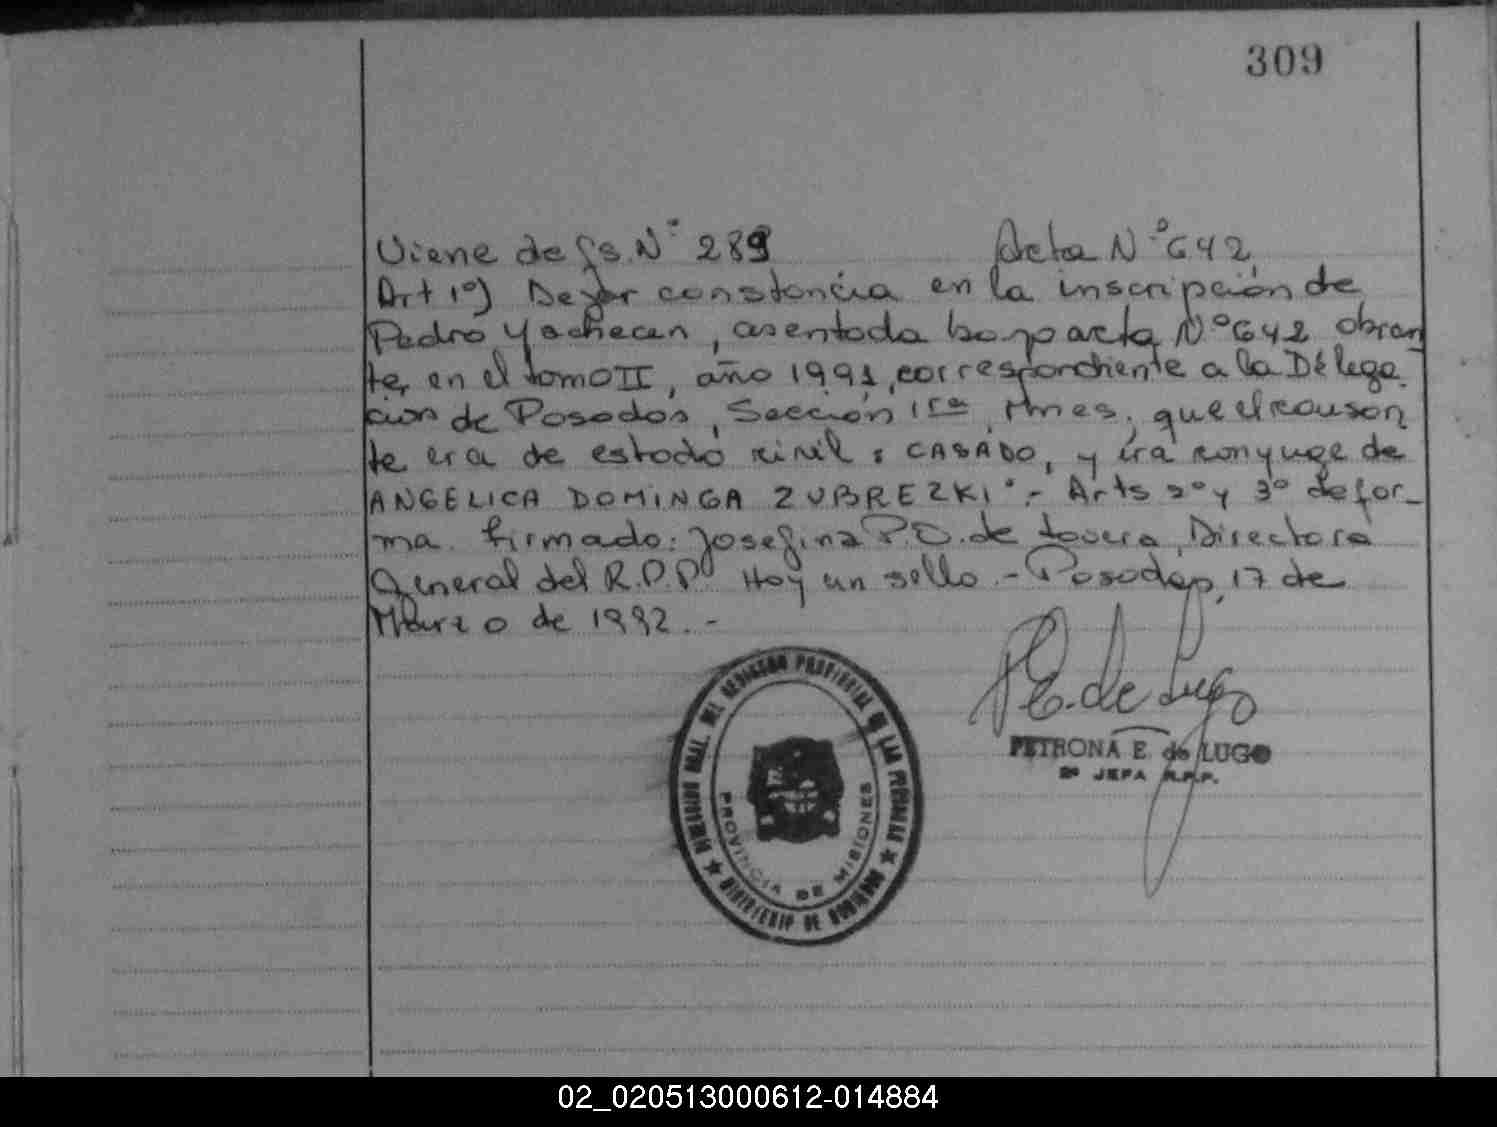 309
Viene de fs. N° 289 Acta N° 642
Art 1°) Dejar constancia en la inscripción de
Pedro Yachecen, asentada bajo acta N° 642 obran
te, en el tomo II, año 1991, correspondiente a la Délega
ción de Posadas, Sección 1ra, Mnes, que el causan
te era de estado civil: CASADO, y era conyuge de
ANGELICA DOMINGA ZUBREZKI".- Arts 2° y 3° de for_
ma. firmado: Josefina P.D. de Tovera, Directora
General del R.P.P. Hay un sello.- Posadas, 17 de
Marzo de 1992.-
P E. de Lugo
PETRONA E. de LUGO
2ª JEFA R.P.P.
DIRECCION GRAL. DEL REGISTRO PROVINCIAL DE LAS PERSONAS
PROVINCIA DE MISIONES
MINISTERIO DE GOBIERNO
02_020513000612-014884